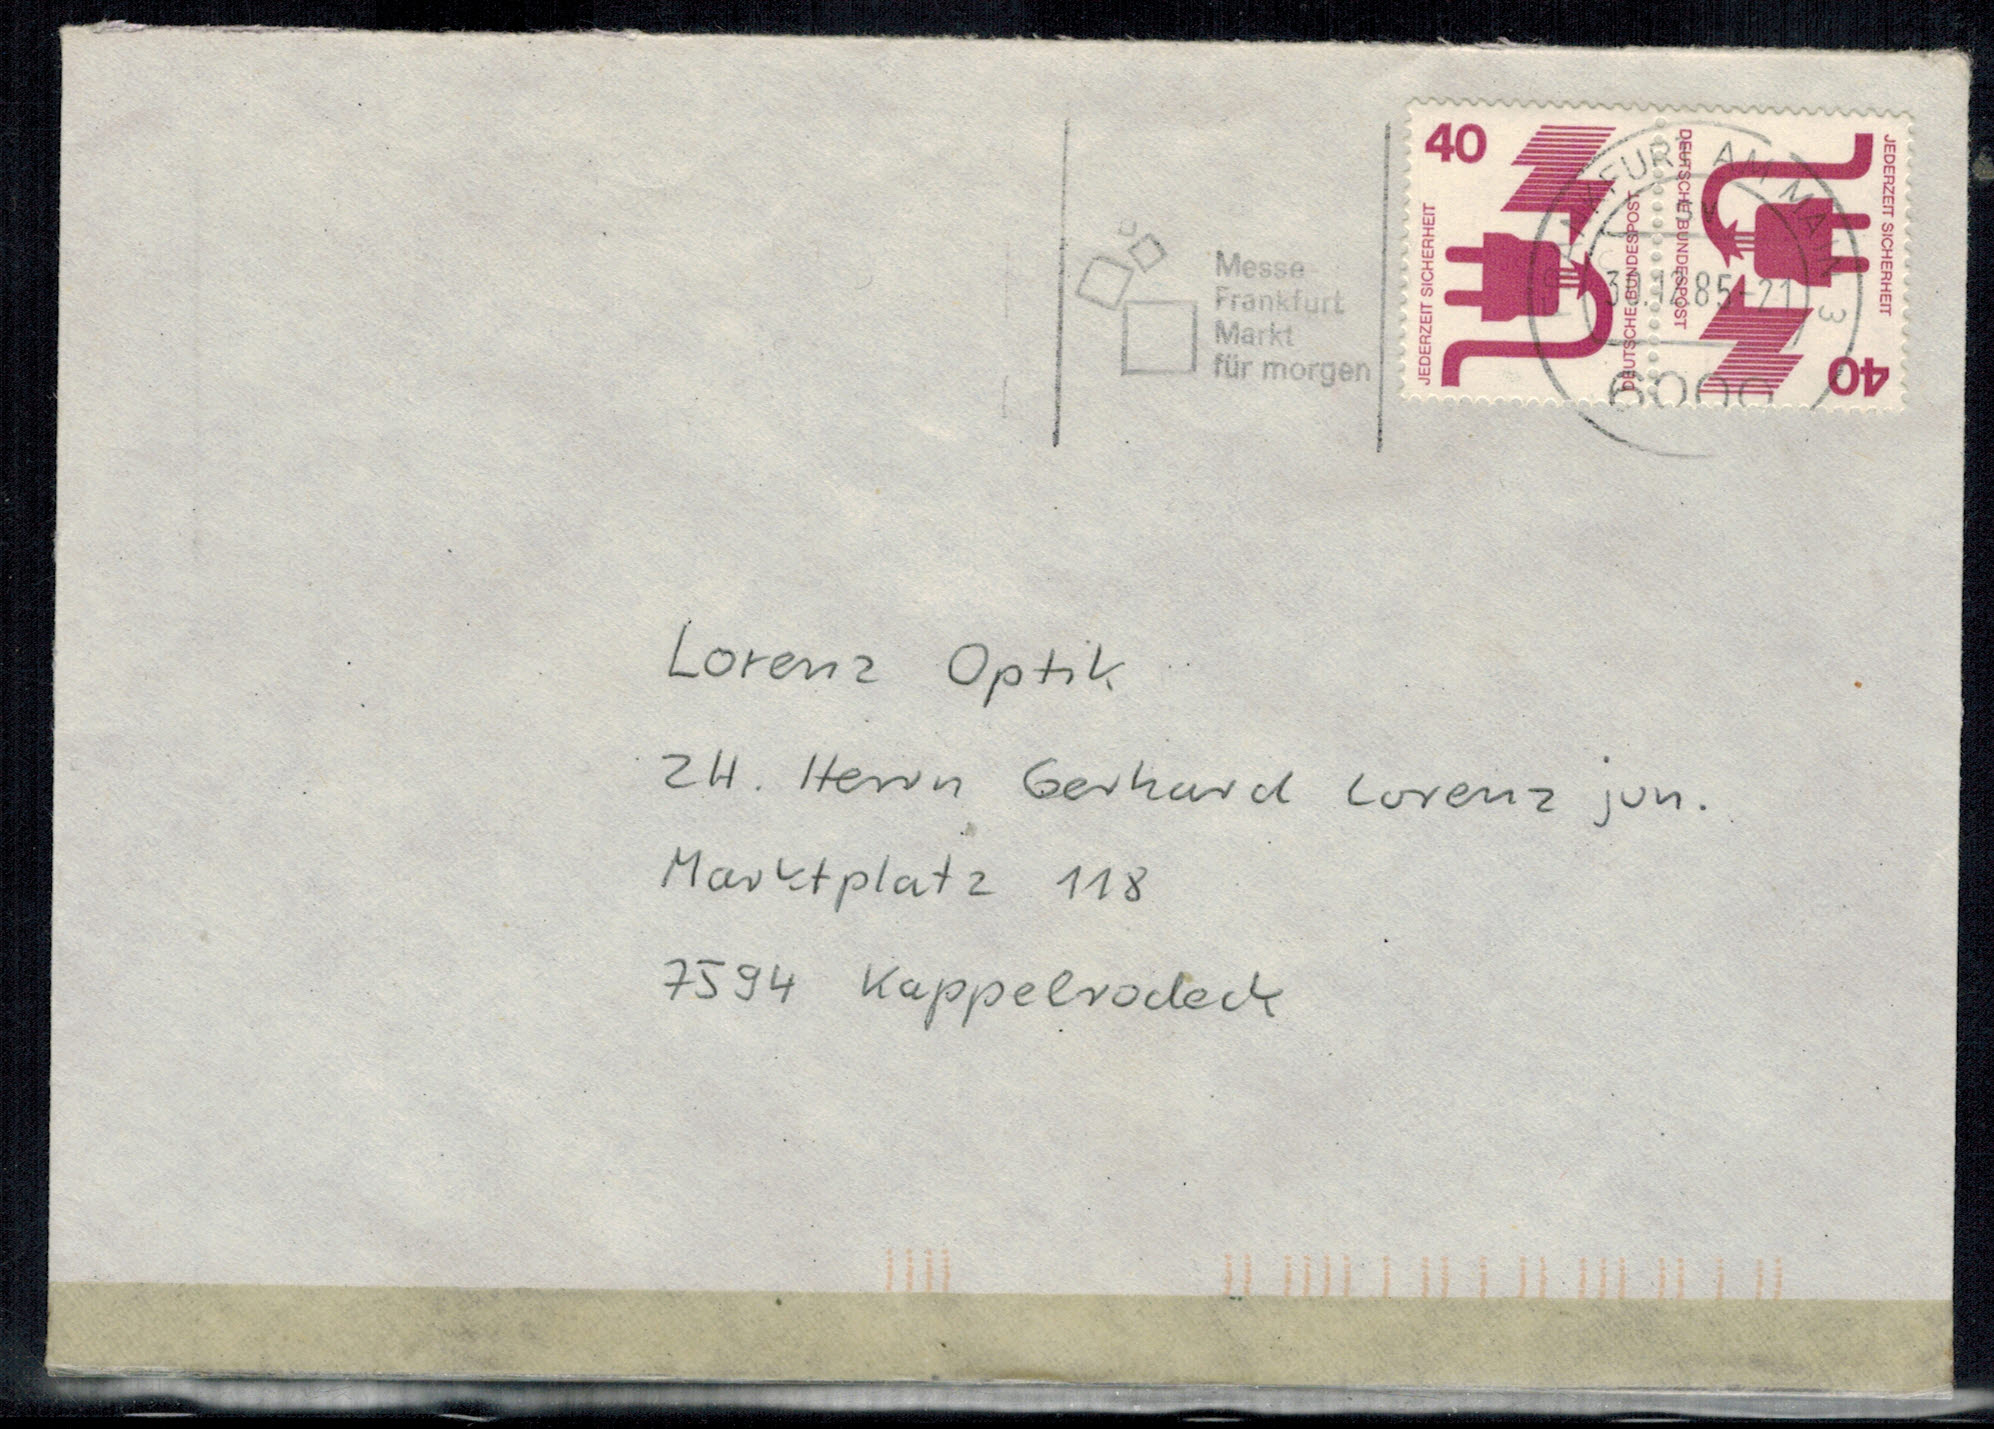 40
JEDERZEIT SICHERHEIT
DEUTSCHE BUNDESPOST
DEUTSCHE BUNDESPOST
JEDERZEIT SICHERHEIT
40
AM MAIN 3
30.12.85-21
6000
Messe-
Frankfurt
Markt
für morgen
Lorenz Optik
ZH. Herrn Gerhard Lorenz jun.
Marktplatz 118
7594 Kappelrodeck